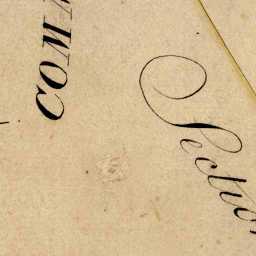 COM
Sectio